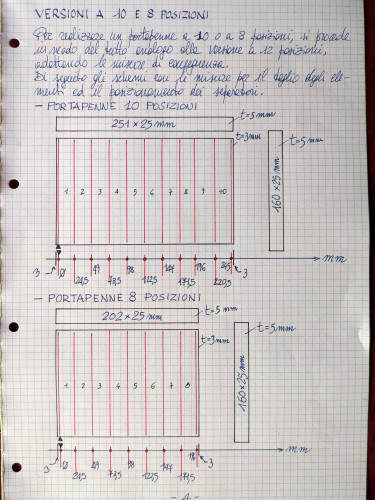 VERSIONI A 10 E 8 POSIZIONI
Per realizzare un portapenne a 10 o a 8 posizioni, si procede
in modo del tutto analogo alla versione a 12 posizioni,
adattando le misure di conseguenza.
Di seguito gli schemi con le misure per il taglio degli ele-
menti ed il posizionamento dei separatori.
- PORTAPENNE 10 POSIZIONI
t=5mm
251 x 25 mm
t=3mm
t=5mm
1 2 3 4 5 6 7 8 9 10
160 x 25 mm
3 49 98 147 196 245 3 mm
24,5 73,5 122,5 171,5 220,5
- PORTAPENNE 8 POSIZIONI
t=5mm
202 x 25 mm
t=5mm
t=3mm
1 2 3 4 5 6 7 8
160 x 25 mm
3 49 98 147 196 3 mm
24,5 73,5 122,5 171,5
- 4 -